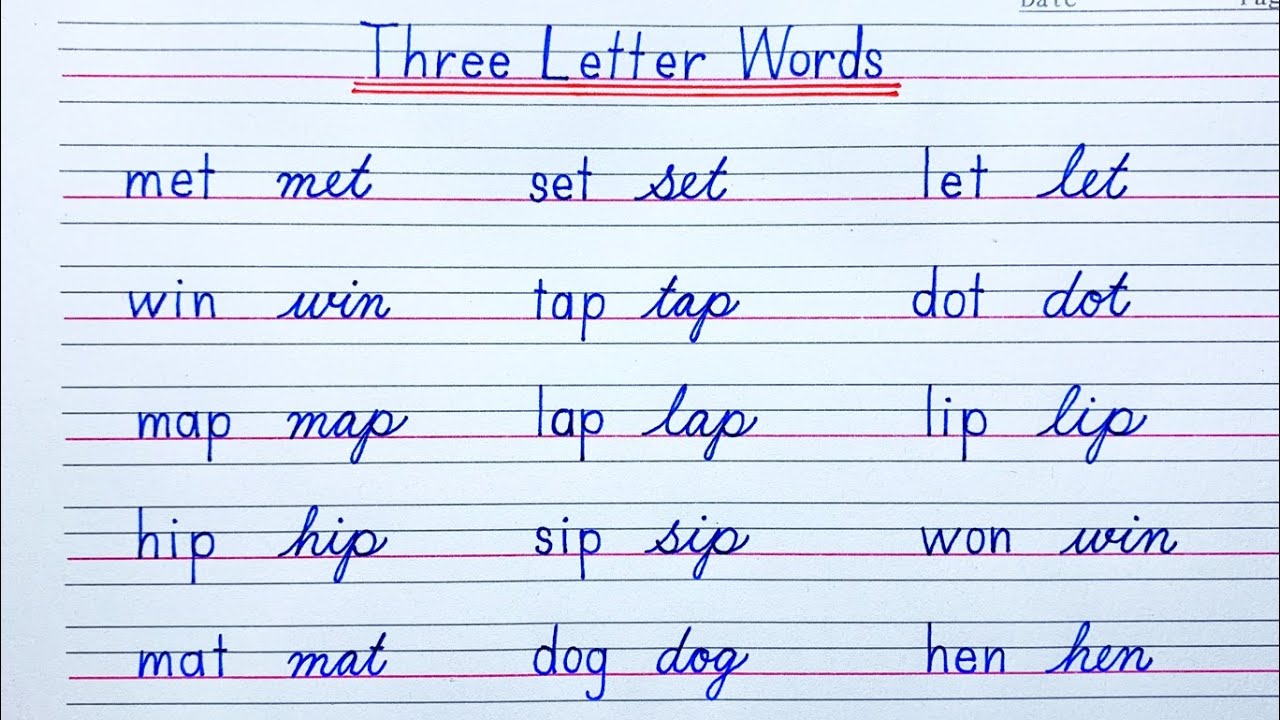 Date Pag
Three Letter Words
met met set set let let
win win tap tap dot dot
map map lap lap lip lip
hip hip sip sip won win
mat mat dog dog hen hen